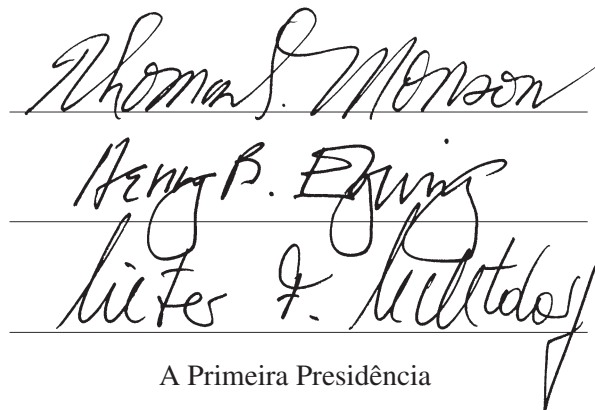 Thomas S. Monson
Henry B. Eyring
Dieter F. Uchtdorf
A Primeira Presidência